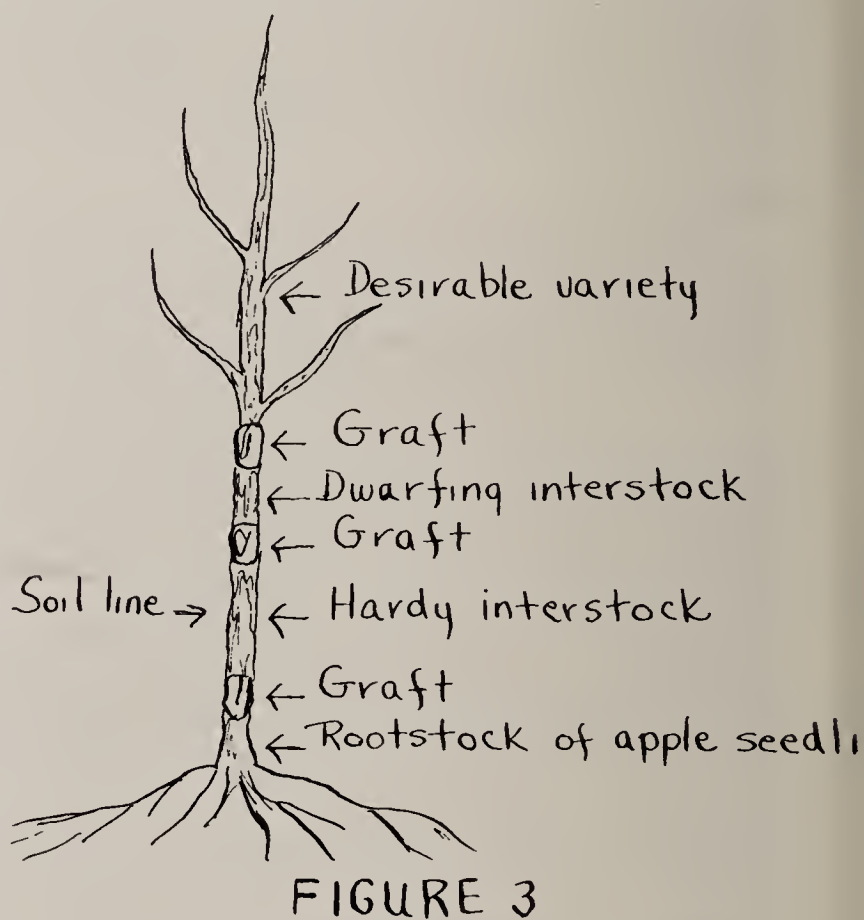 ← Desirable variety
← Graft
← Dwarfing interstock
← Graft
Soil line →
← Hardy interstock
← Graft
← Rootstock of apple seedli
FIGURE 3